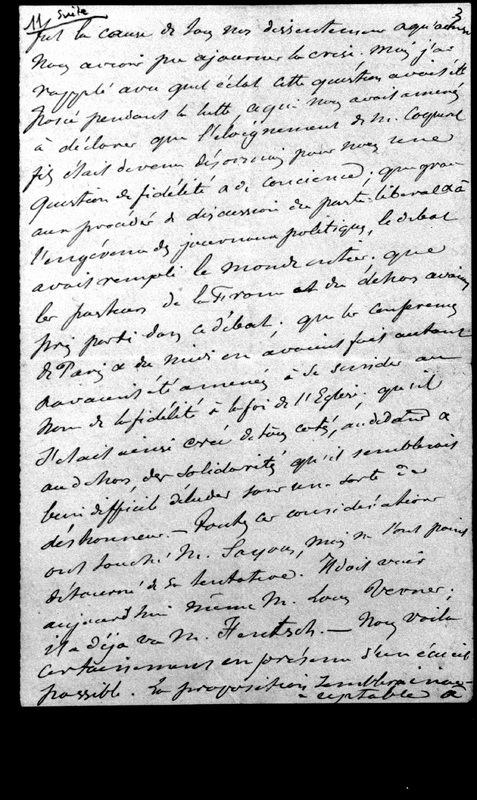 11 suite
3
fut la cause de tous nos dissentiments & qu'autrem
nous avions pu ajourner la crise. Mais j'ai
rappelé avec quel éclat cette question avait été
posée pendant la lutte & qui nous avait amenés
à déclarer que l'éloignement de M. Coquerel
fils était devenu désormais pour nous une
question de fidélité & de conscience; que grace
aux procédés de discussion du parti libéral & à
l'ingérence des journaux politiques, le débat
avait rempli le monde entier; que
les pasteurs de la France et du dehors avaient
pris parti dans ce débat; que les conférences
de Paris & du midi en avaient fait autant
& avaient été amenés à se scinder au
nom de la fidélité à la foi de l'Eglise; qu'il
s'était ainsi créé de tous cotés, au dedans &
au dehors, des solidarités qu'il semblerait
bien difficile d'éluder sans une sorte de
déshonneur. — Toutes ces considérations
ont touché M. Sayous, mais ne l'ont point
détourné de sa tentative. Il doit voir
aujourd'hui même M. Louis Vernes;
il a déjà vu M. Hentsch. — Nous voilà
certainement en présence d'un écueil
possible. La proposition semblera inac-
ceptable à